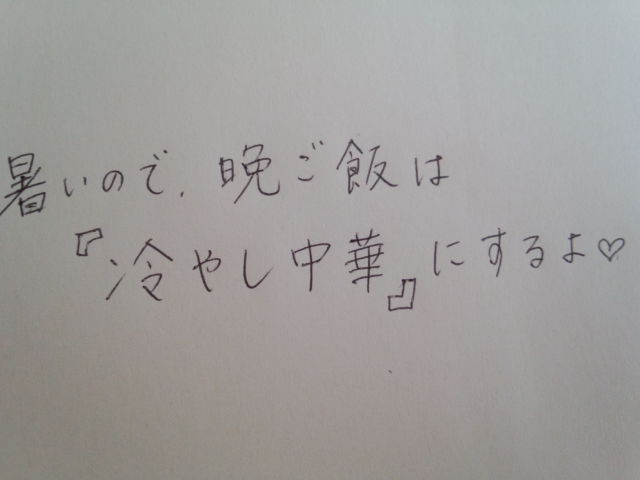 暑いので、晩ご飯は
『冷やし中華』にするよ♡